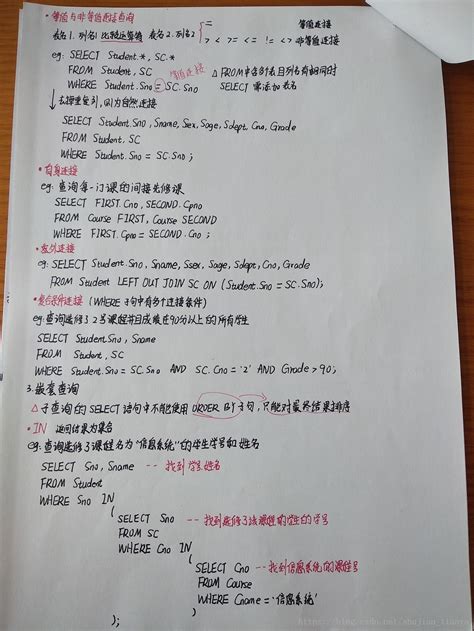 • 等值与非等值连接查询
表名1.列名1 比较运算符 表名2.列名2
= 等值连接
> < >= <= != <> 非等值连接
eg: SELECT Student.*, SC.*
FROM Student, SC 等值连接 △ FROM中各个表且列名有相同时
WHERE Student.Sno = SC.Sno SELECT 需添加表名
↓去掉重复列,即为自然连接
SELECT Student.Sno, Sname, Ssex, Sage, Sdept, Cno, Grade
FROM Student, SC
WHERE Student.Sno = SC.Sno ;
• 自身连接
eg: 查询每一门课的间接先修课
SELECT FIRST.Cno, SECOND.Cpno
FROM Course FIRST, Course SECOND
WHERE FIRST.Cpno = SECOND.Cno ;
• 左外连接
eg: SELECT Student.Sno, Sname, Ssex, Sage, Sdept, Cno, Grade
FROM Student LEFT OUT JOIN SC ON (Student.Sno = SC.Sno);
• 复合条件连接 (WHERE子句中有多个连接条件)
eg: 查询选修了2号课程并且成绩在90分以上的所有学生
SELECT Student.Sno, Sname
FROM Student, SC
WHERE Student.Sno = SC.Sno AND SC.Cno = '2' AND Grade > 90;
3. 嵌套查询
△ 子查询的SELECT语句中不能使用ORDER BY子句,只能对最终结果排序
• IN 返回结果为集合
eg: 查询选修了课程名为“信息系统”的学生学号和姓名
SELECT Sno, Sname -- 找到学号,姓名
FROM Student
WHERE Sno IN
(
SELECT Sno -- 找到选修了该课程的学生的学号
FROM SC
WHERE Cno IN
(
SELECT Cno -- 找到信息系统的课程号
FROM Course
WHERE Cname = '信息系统'
);
);